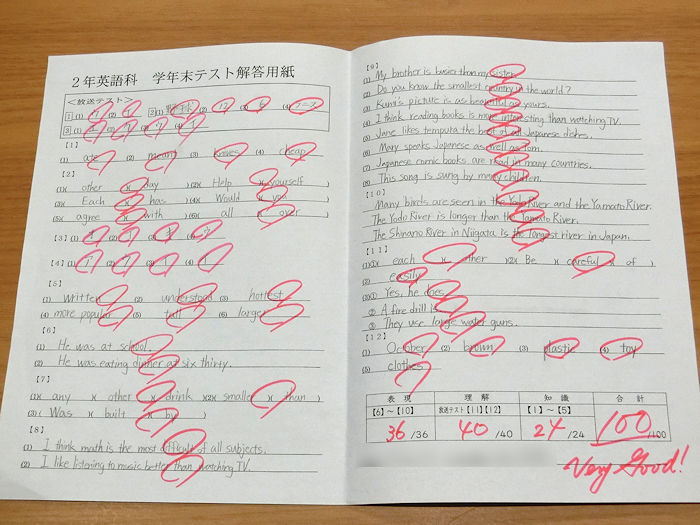 2年英語科 学年末テスト解答用紙
<放送テスト>
1 (1) ア (2) (1) 野球 (2) 12 (3) 6 (4)
3 (1) (2) (3) ア (4) イ
【1】
(1) ate (2) meant (3) knives (4) cheap
【2】
(1)( other )( day ) (2)( Help )( yourself )
(3)( Each )( has ) (4)( Would )( you )
(5)( agree )( with ) (6)( all )( over )
【3】(1) (2) (3) (4) ウ
【4】(1) ア (2) (3) (4) イ
【5】
(1) written (2) understood (3) hottest
(4) more popular (5) tall (6) larger
【6】
(1) He was at school.
(2) He was eating dinner at six thirty.
【7】
(1)( any )( other )( drink )(2)( smaller )( than )
(3)( Was )( built )( by )
【8】
(1) I think math is the most difficult of all subjects.
(2) I like listening to music better than watching TV.
【9】
(1) My brother is busier than my sister.
(2) Do you know the smallest country in the world?
(3) Kumi's picture is as beautiful as yours.
(4) I think reading books is more interesting than watching TV.
(5) Jane likes tempura the best of all Japanese dishes.
(6) Mary speaks Japanese as well as Tom.
(7) Japanese comic books are read in many countries.
(8) This song is sung by many children.
【10】
Many birds are seen in the Yodo River and the Yamato River.
The Yodo River is longer than the Yamato River.
The Shinano River in Niigata is the longest river in Japan.
【11】
(1)( each )( other )(2)( Be )( careful )( of )
(2) easily
(3)① Yes, he does.
② A fire drill is.
③ They use large water guns.
【12】
(1) October (2) brown (3) plastic (4) toy
(5) clothes
表現 理解 知識 合計
【6】~【10】 放送テスト【11】【12】 【1】~【5】
36 /36 40 /40 24 /24 100 /100
Very Good!